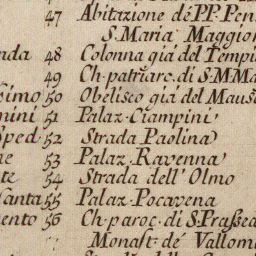 47 Abitazione de PP. Pen
S. Maria Maggior
48 Colonna già del Tempi
49 Ch. patriarc. di S. M. Ma
simo 50 Obelisco già del Mauso
51 Palaz. Ciampini
Sped 52 Strada Paolina
53 Palaz. Ravenna
te 54 Strada dell' Olmo
Santa 55 Palaz. Pocavena
ento 56 Ch. paroc. di S. Prassed
Monast. de' Vallom